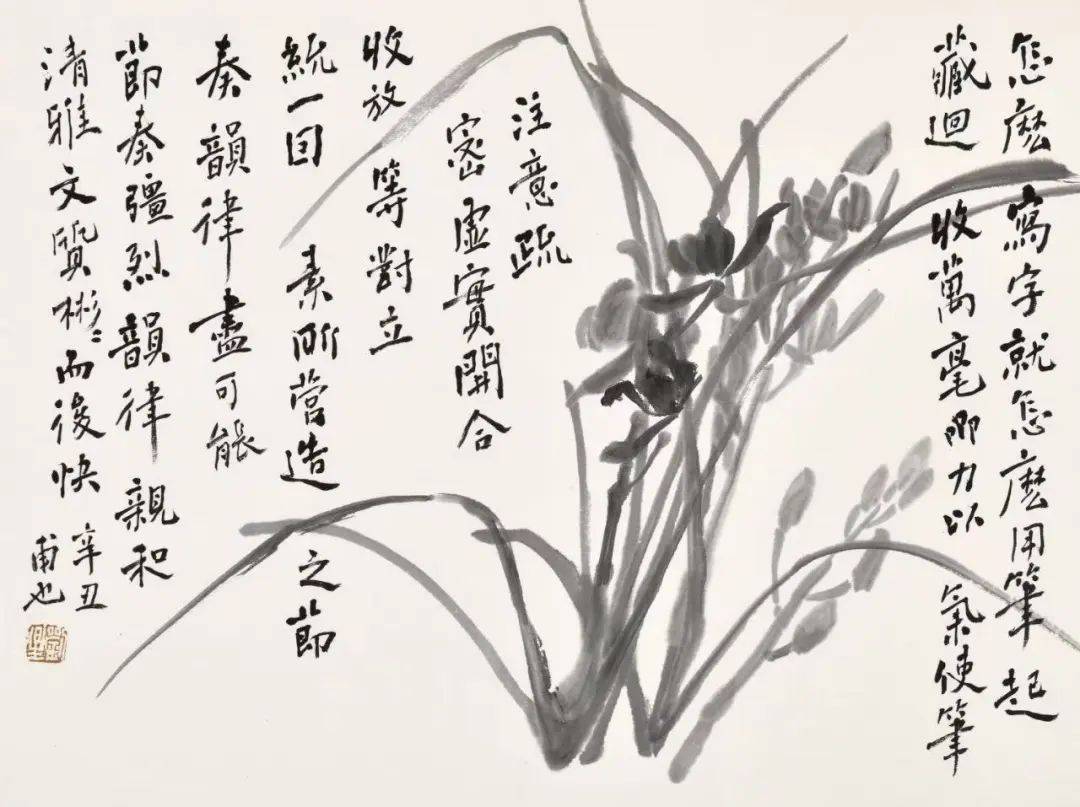 怎麽寫字就怎麽用筆起
藏迴收萬毫聊力以氣使筆
注意疏
密虛實開合
收放等對立
統一因素所營造之節
奏韻律盡可能
節奏彊烈韻律親和
清雅文質彬〻而後快
辛丑
甫也